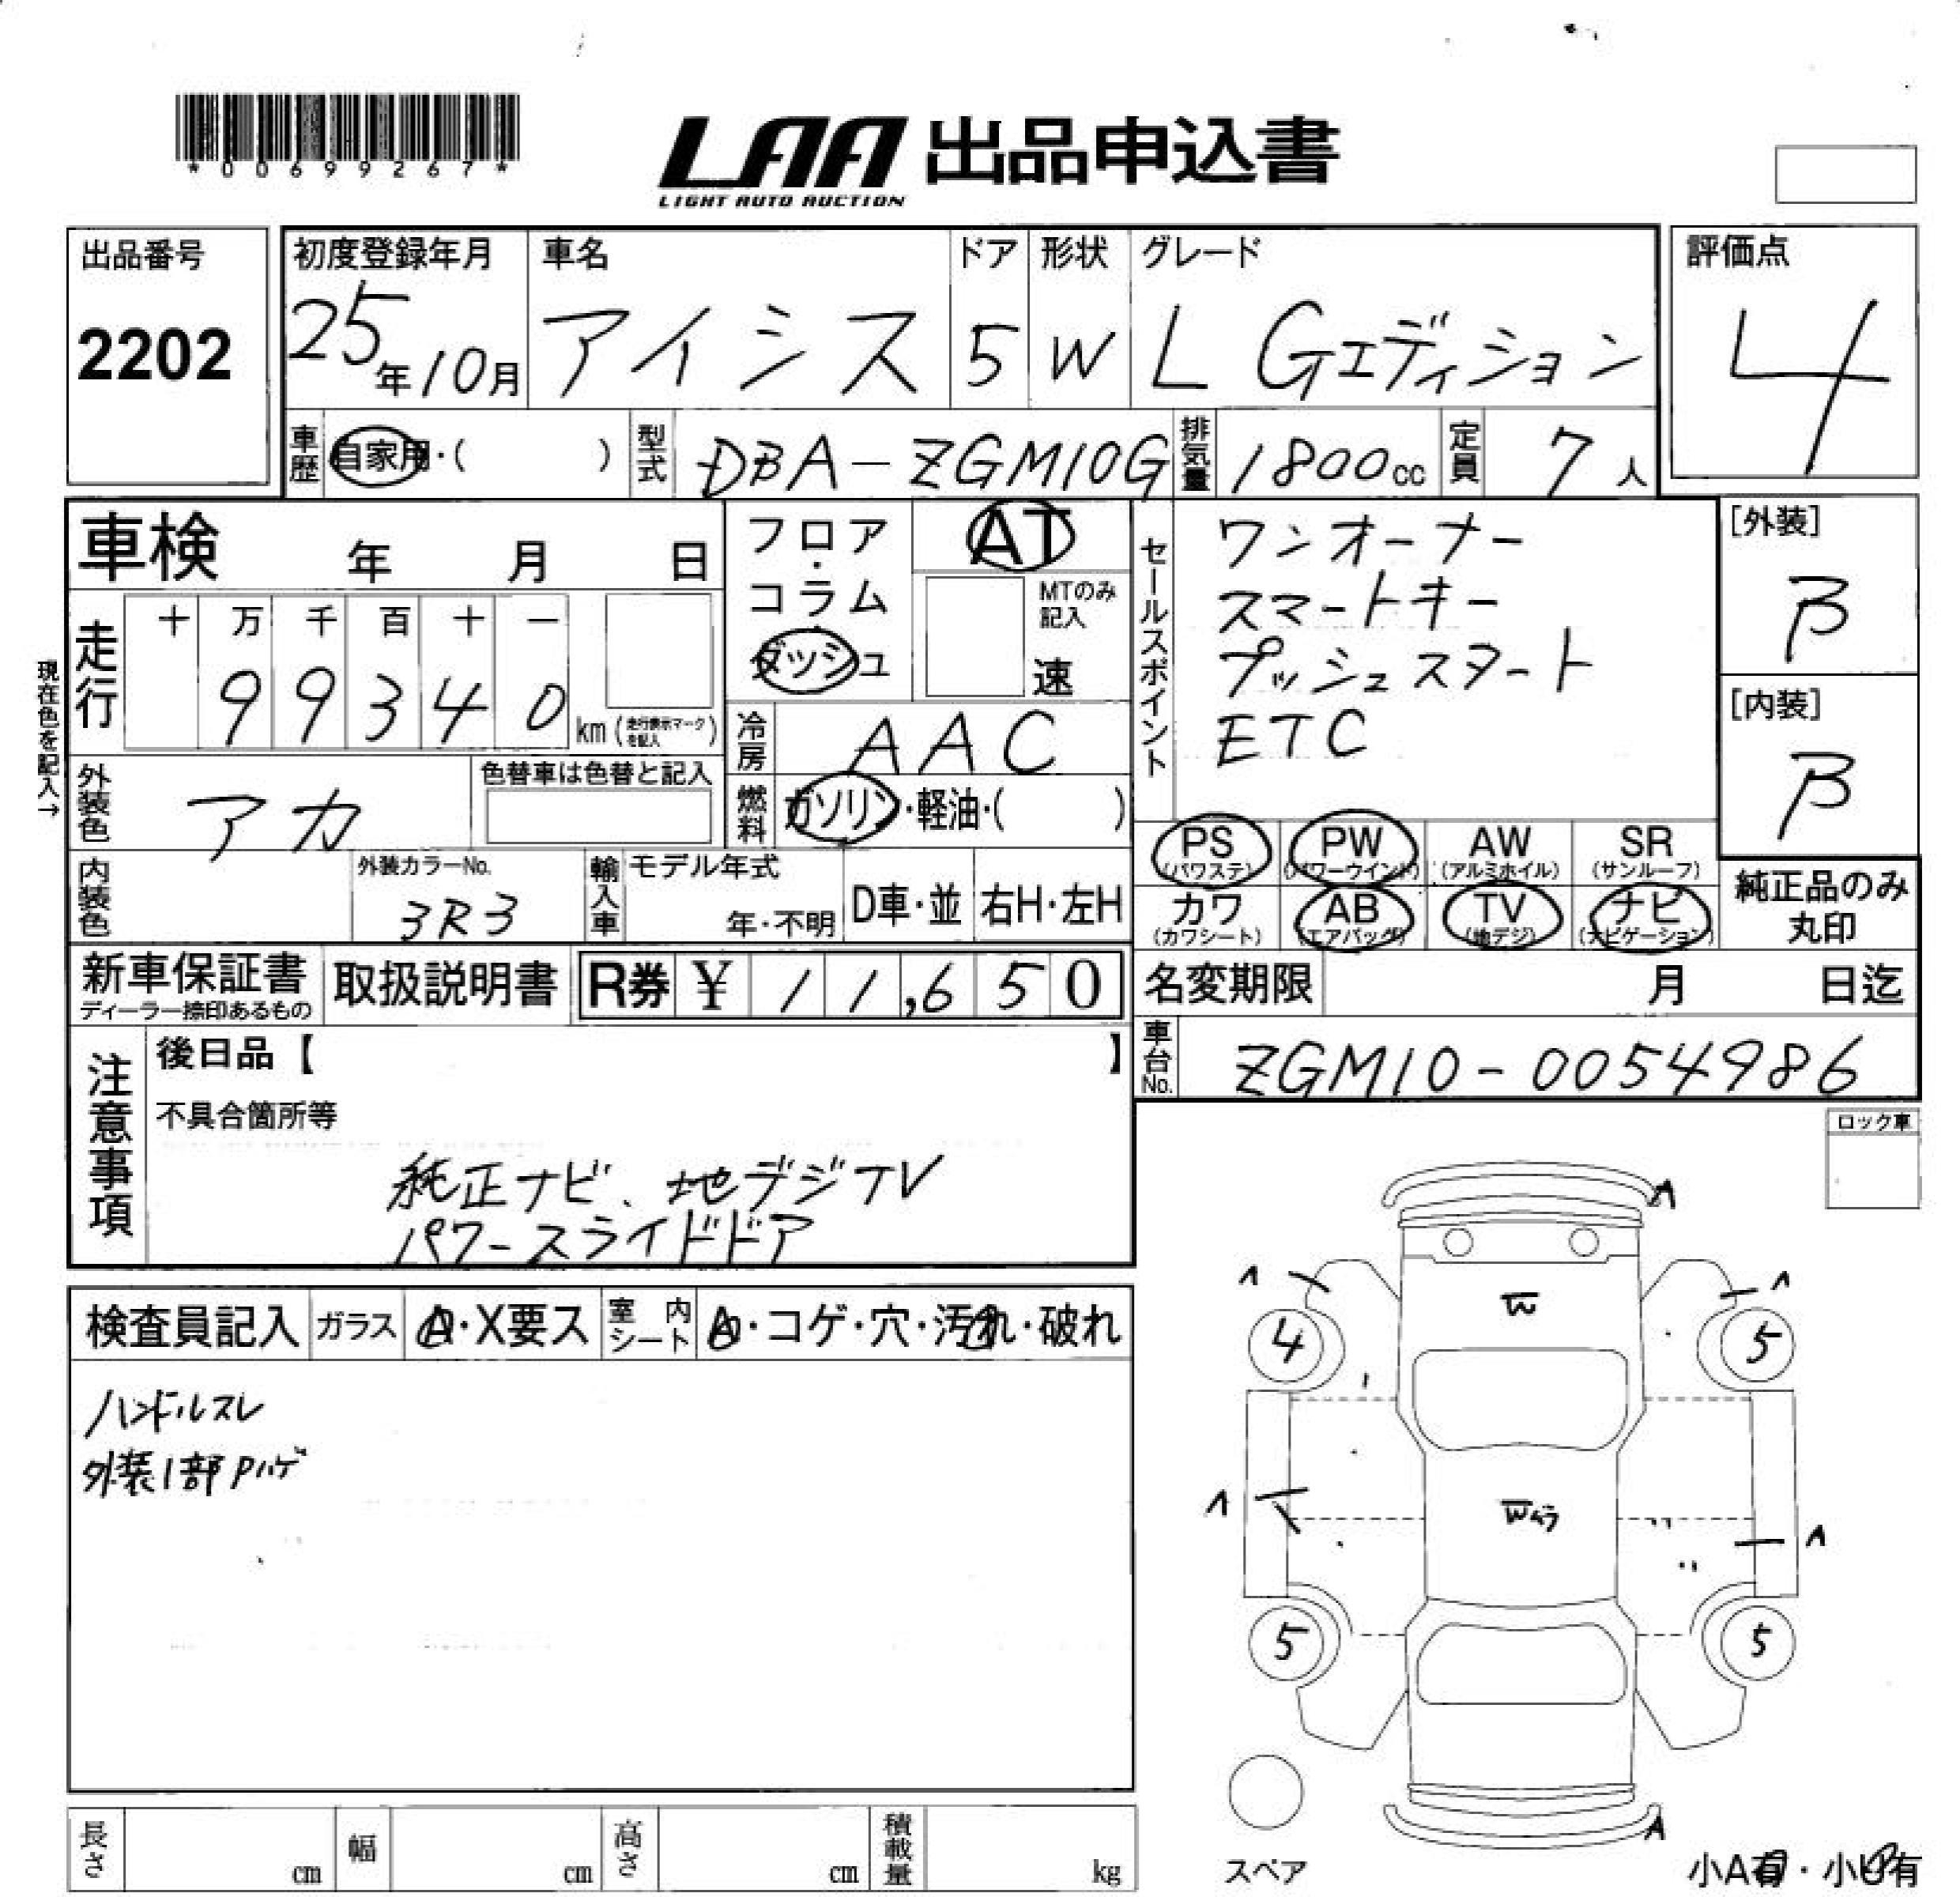 *00699267*
LAA 出品申込書
LIGHT AUTO AUCTION
出品番号
2202
初度登録年月
25年10月
車名
アイシス
ドア
5
形状
W
グレード
L Gエディション
評価点
4
車歴 自家用・( )
型式 DBA-ZGM10G
排気量 1800cc
定員 7人
車検 年 月 日
フロア・コラム
ダッシュ
AT
MTのみ記入
速
セールスポイント
ワンオーナー
スマートキー
プッシュスタート
ETC
[外装]
B
[内装]
B
現在色を記入→
走行 十 万 千 百 十 一
99340 km (走行表示マークを記入)
冷房 AAC
外装色 アカ
色替車は色替と記入
燃料 ガソリン・軽油・( )
PS (パワステ)
PW (パワーウインド)
AW (アルミホイル)
SR (サンルーフ)
カワ (カワシート)
AB (エアバッグ)
TV (地デジ)
ナビ (ナビゲーション)
純正品のみ丸印
内装色
外装カラーNo.
3R3
輸入車
モデル年式
年・不明
D車・並
右H・左H
新車保証書
ディーラー捺印あるもの
取扱説明書
R券 ¥ 11,650
名変期限 月 日迄
車台No. ZGM10-0054986
注意事項
後日品【 】
不具合箇所等
純正ナビ、地デジTV
パワースライドドア
ロック車
検査員記入
ガラス A・X要ス
室内シート ・コゲ・穴・汚れ・破れ
ハンドルスレ
外装1部Pハゲ
A
A A
W
4 5
A W A
5 5
A
スペア
小A有・小U有
長さ cm
幅 cm
高さ cm
積載量 kg